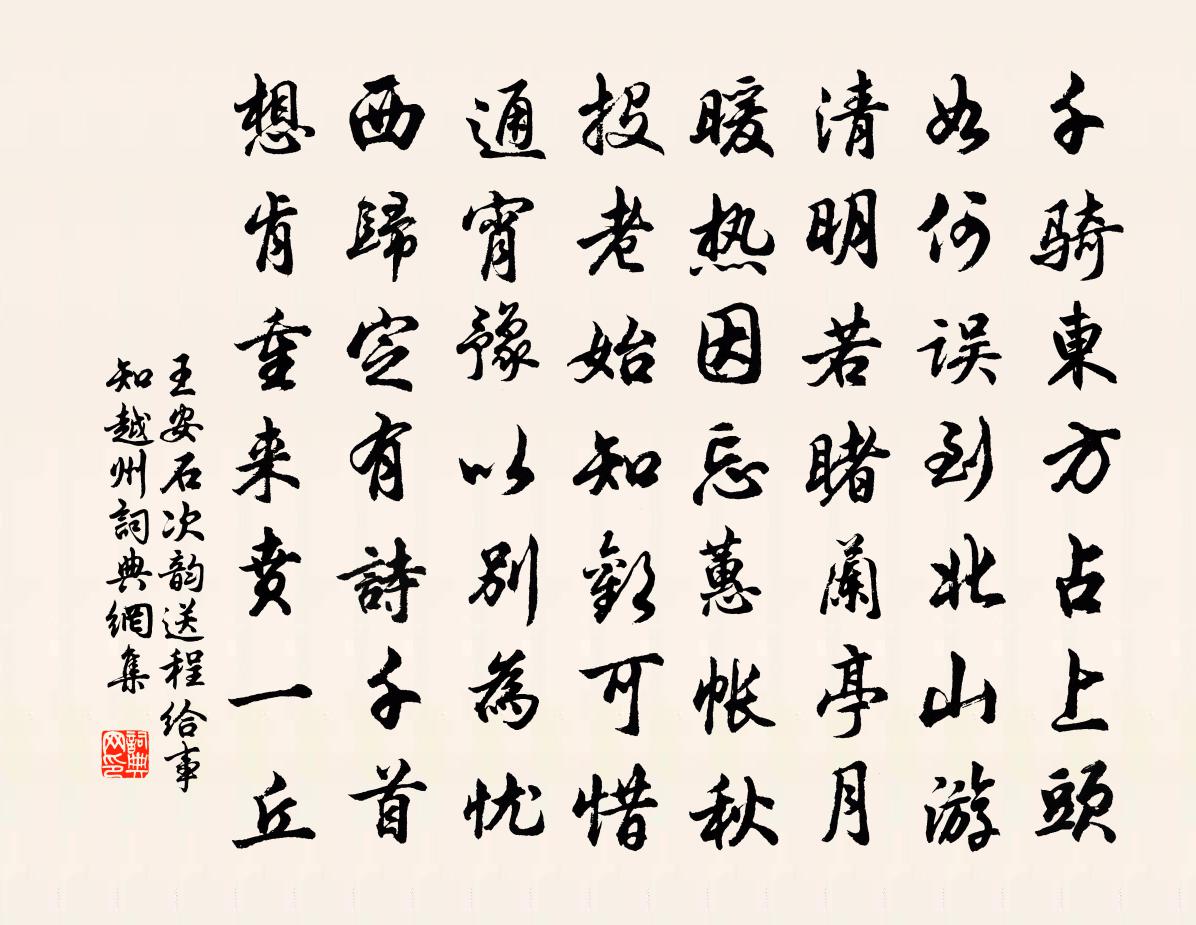 千骑東方占上頭
如何误到北山游
清明若睹蘭亭月
暖热因忘蕙帐秋
投老始知歡可惜
通宵豫以别為忧
西歸定有詩千首
想肯重来賁一丘
王安石次韵送程给事
知越州詞典網集
詞典网印